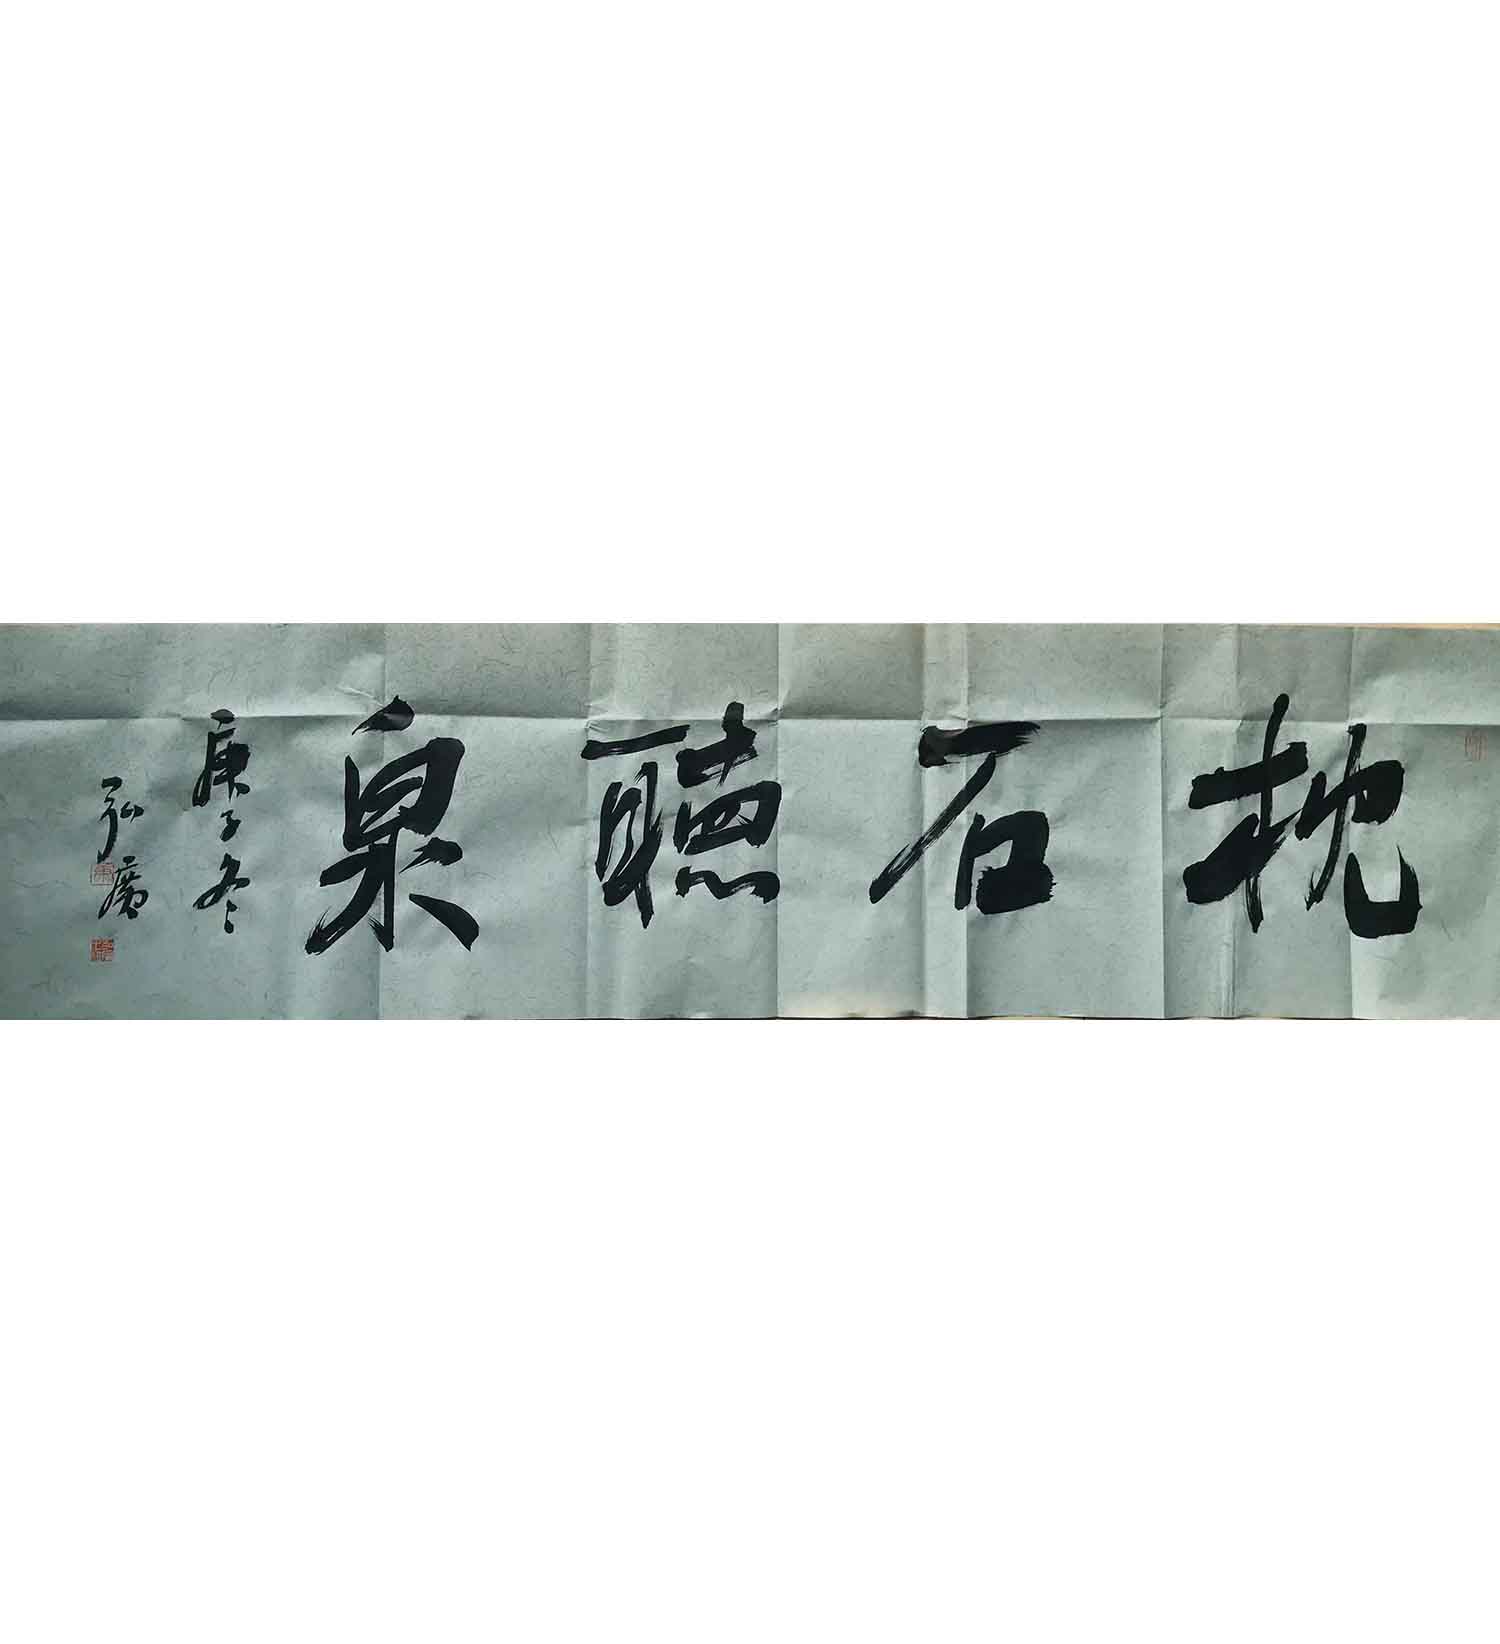 枕石聽泉
庚子冬
弘廣